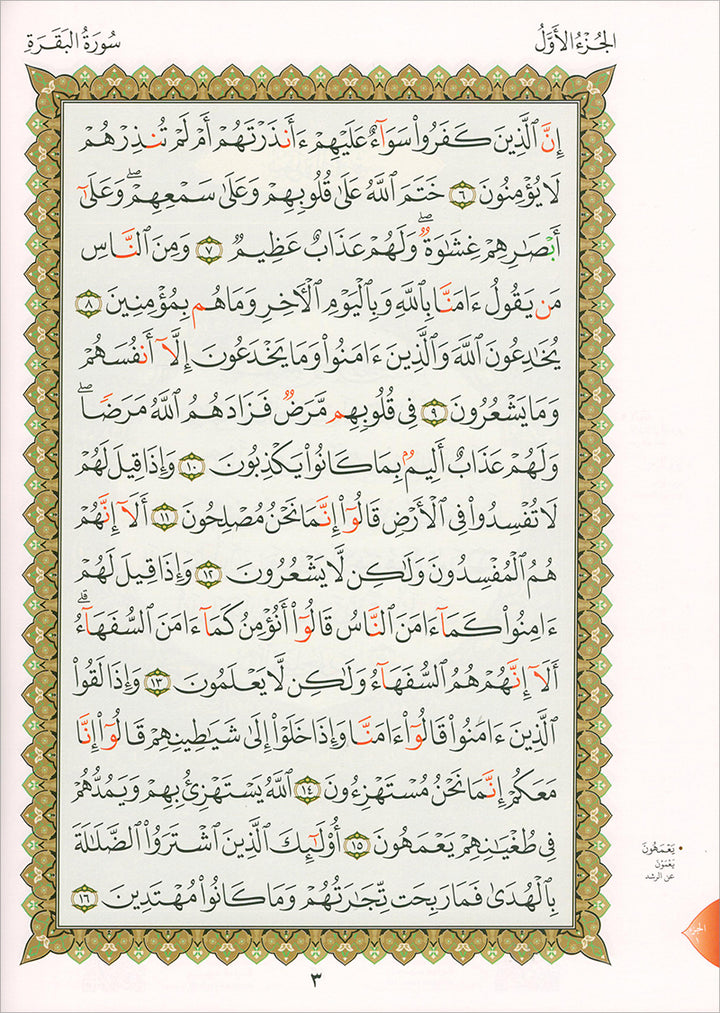 الجُزْءُ الأَوَّلُ
سُورَةُ البَقَرَةِ
إِنَّ ٱلَّذِينَ كَفَرُوا۟ سَوَآءٌ عَلَيْهِمْ ءَأَنذَرْتَهُمْ أَمْ لَمْ تُنذِرْهُمْ
لَا يُؤْمِنُونَ ٦ خَتَمَ ٱللَّهُ عَلَىٰ قُلُوبِهِمْ وَعَلَىٰ سَمْعِهِمْ ۖ وَعَلَىٰٓ
أَبْصَٰرِهِمْ غِشَٰوَةٌ ۖ وَلَهُمْ عَذَابٌ عَظِيمٌ ٧ وَمِنَ ٱلنَّاسِ
مَن يَقُولُ ءَامَنَّا بِٱللَّهِ وَبِٱلْيَوْمِ ٱلْأَخِرِ وَمَا هُم بِمُؤْمِنِينَ ٨
يُخَٰدِعُونَ ٱللَّهَ وَٱلَّذِينَ ءَامَنُوا۟ وَمَا يَخْدَعُونَ إِلَّآ أَنفُسَهُمْ
وَمَا يَشْعُرُونَ ٩ فِى قُلُوبِهِم مَّرَضٌ فَزَادَهُمُ ٱللَّهُ مَرَضًا ۖ
وَلَهُمْ عَذَابٌ أَلِيمٌۢ بِمَا كَانُوا۟ يَكْذِبُونَ ١٠ وَإِذَا قِيلَ لَهُمْ
لَا تُفْسِدُوا۟ فِى ٱلْأَرْضِ قَالُوٓا۟ إِنَّمَا نَحْنُ مُصْلِحُونَ ١١ أَلَآ إِنَّهُمْ
هُمُ ٱلْمُفْسِدُونَ وَلَٰكِن لَّا يَشْعُرُونَ ١٢ وَإِذَا قِيلَ لَهُمْ
ءَامِنُوا۟ كَمَآ ءَامَنَ ٱلنَّاسُ قَالُوٓا۟ أَنُؤْمِنُ كَمَآ ءَامَنَ ٱلسُّفَهَآءُ ۗ
أَلَآ إِنَّهُمْ هُمُ ٱلسُّفَهَآءُ وَلَٰكِن لَّا يَعْلَمُونَ ١٣ وَإِذَا لَقُوا۟
ٱلَّذِينَ ءَامَنُوا۟ قَالُوٓا۟ ءَامَنَّا وَإِذَا خَلَوْا۟ إِلَىٰ شَيَٰطِينِهِمْ قَالُوٓا۟ إِنَّا
مَعَكُمْ إِنَّمَا نَحْنُ مُسْتَهْزِءُونَ ١٤ ٱللَّهُ يَسْتَهْزِئُ بِهِمْ وَيَمُدُّهُمْ
فِى طُغْيَٰنِهِمْ يَعْمَهُونَ ١٥ أُو۟لَٰٓئِكَ ٱلَّذِينَ ٱشْتَرَوُا۟ ٱلضَّلَٰلَةَ
بِٱلْهُدَىٰ فَمَا رَبِحَت تِّجَٰرَتُهُمْ وَمَا كَانُوا۟ مُهْتَدِينَ ١٦
• يَعْمَهُونَ
يَعْمَوْنَ
عن الرشد
الجزء
١
٣